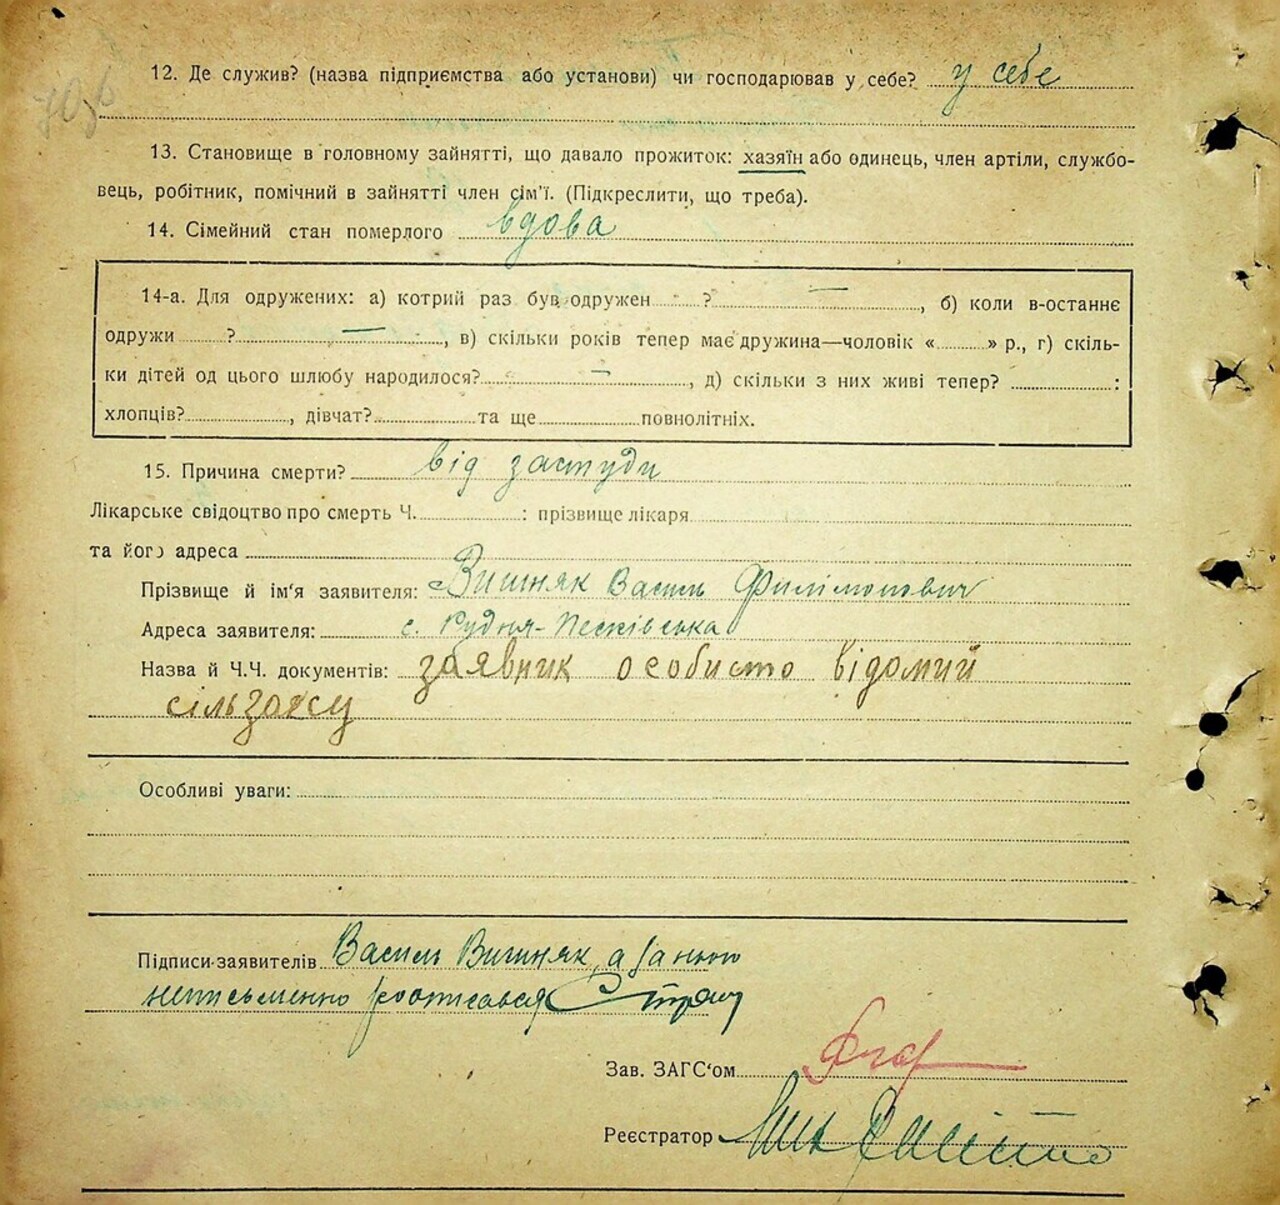 12. Де служив? (назва підприємства або установи) чи господарював у себе? у себе
13. Становище в головному зайнятті, що давало прожиток: хазяїн або одинець, член артіли, службо-
вець, робітник, помічний в зайнятті член сім'ї. (Підкреслити, що треба).
14. Сімейний стан померлого вдова
14-а. Для одружених: а) котрий раз був одружен ? —, б) коли в-останнє
одружи ? —, в) скільки років тепер має дружина—чоловік « » р., г) скіль-
ки дітей од цього шлюбу народилося? —, д) скільки з них живі тепер? :
хлопців? , дівчат? та ще повнолітніх.
15. Причина смерти? від застуди
Лікарське свідоцтво про смерть Ч. : прізвище лікаря
та його адреса
Прізвище й ім'я заявителя: Вишняк Василь Филімонович
Адреса заявителя: с. Рудня-Песківська
Назва й Ч.Ч. документів: заявник особисто відомий
сільзагсу
Особливі уваги:
Підписи заявителів Василь Вишняк, а за нього
неписьменно росписався
Зав. ЗАГС'ом
Реєстратор